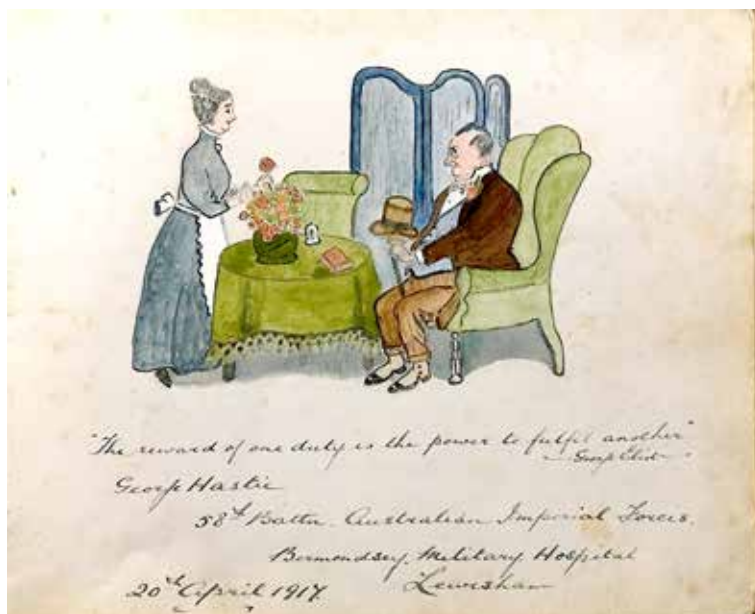 "The reward of one duty is the power to fulfil another"
- George Eliot -
George Hastie
58th Battn. Australian Imperial Forces.
Bermondsey Military Hospital
20th April 1917. Lewisham